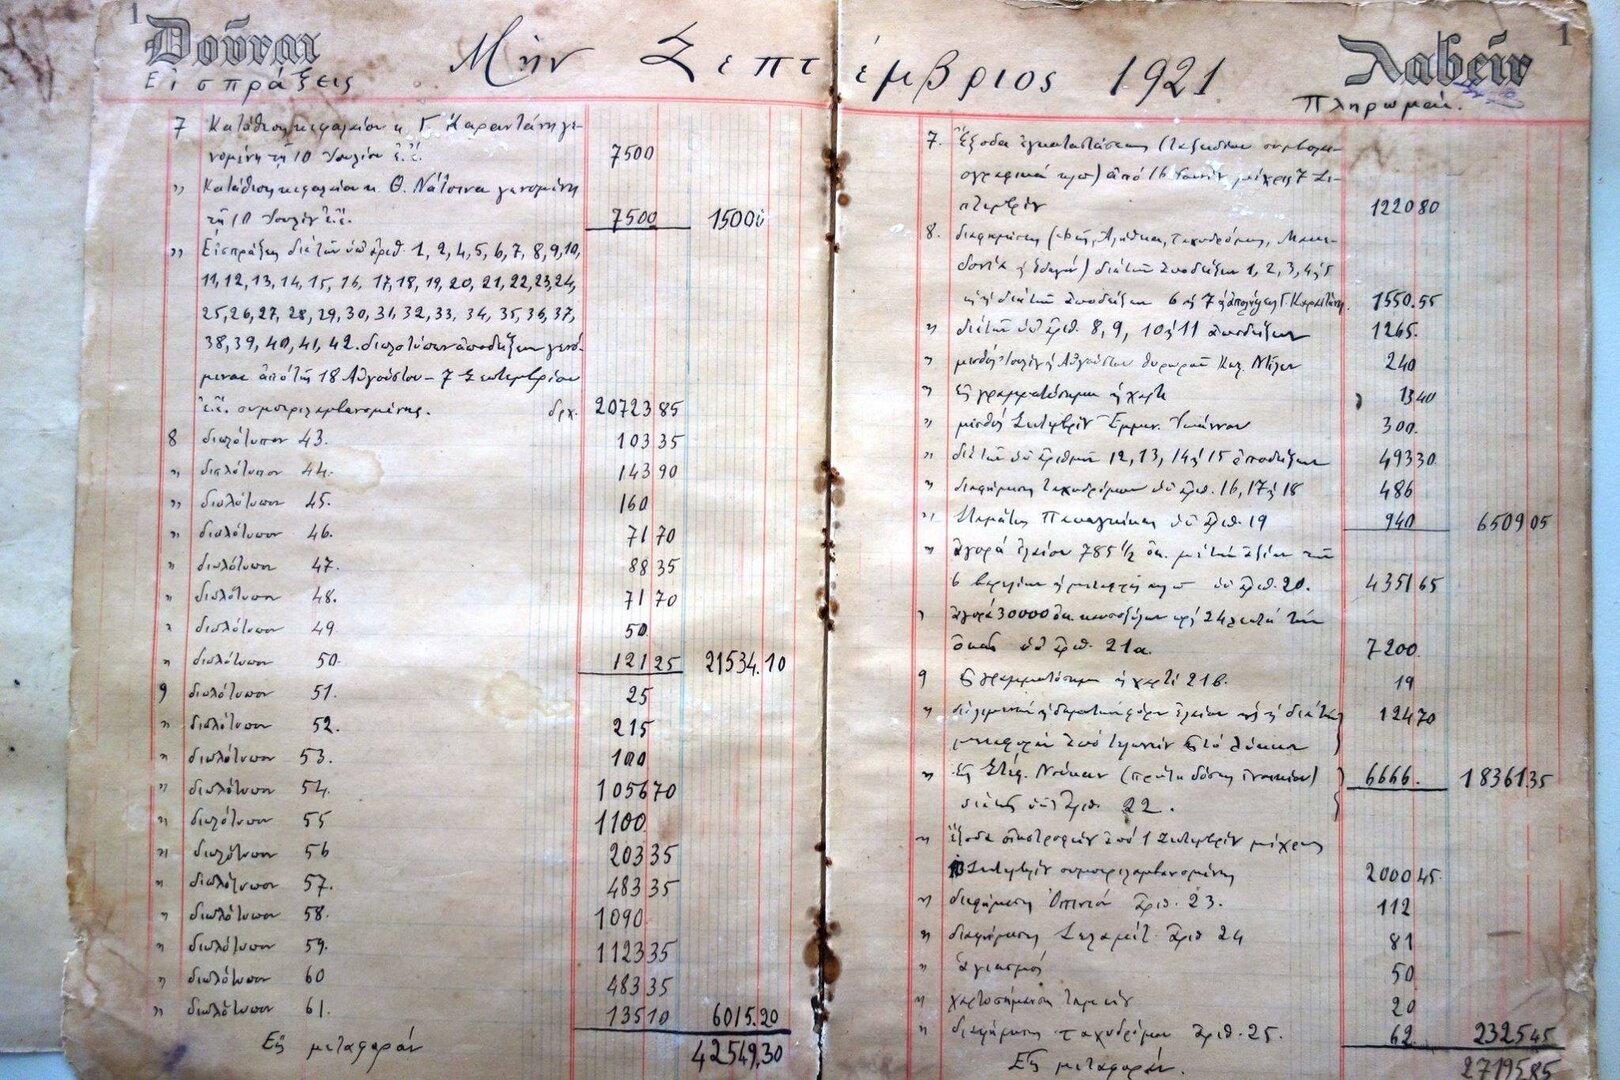 1
Δοῦναι
Εἰσπράξεις
Μὴν Σεπτέμβριος 1921
Λαβεῖν
1
Πληρωμαί.
7 Κατάθεσις κεφαλαίου κ. Γ. Καραντάνη γε-
νομένη τῇ 10 Ἰουλίου ἔ.ἔ. 7500
" Κατάθεσις κεφαλαίου κ. Θ. Νάτσινα γενομένη
τῇ 10 Ἰουλίου ἔ.ἔ. 7500 15000
" Εἰσπράξεις διὰ τῶν ὑπ' ἀριθ 1, 2, 4, 5, 6, 7, 8, 9, 10,
11, 12, 13, 14, 15, 16, 17, 18, 19, 20, 21, 22, 23, 24,
25, 26, 27, 28, 29, 30, 31, 32, 33, 34, 35, 36, 37,
38, 39, 40, 41, 42. διπλοτύπων ἀποδείξεων γενό-
μεναι ἀπὸ τῆς 18 Αὐγούστου - 7 Σεπτεμβρίου
ἔ.ἔ. συμπεριλαμβανομένης. δρχ. 20723 85
8 διπλότυπον 43. 103 35
" διπλότυπον 44. 143 90
" διπλότυπον 45. 160
" διπλότυπον 46. 71 70
" διπλότυπον 47. 88 35
" διπλότυπον 48. 71 70
" διπλότυπον 49 50
" διπλότυπον 50. 121 25 21534.10
9 διπλότυπον 51. 25
" διπλότυπον 52. 215
" διπλότυπον 53. 100
" διπλότυπον 54. 1056 70
" διπλότυπον 55 1100
" διπλότυπον 56 203 35
" διπλότυπον 57. 483 35
" διπλότυπον 58. 1090
" διπλότυπον 59. 1123 35
" διπλότυπον 60 483 35
" διπλότυπον 61. 135 10 6015.20
Εἰς μεταφοράν 42549,30
7. Ἔξοδα ἐγκαταστάσεως (ταξειδίων συμβολαι-
ογραφικὰ κλπ) ἀπὸ 16 Ἰουνίου μέχρι 7 Σε-
πτεμβρίου 1220 80
8. διαφημίσεις Ταχυδρόμος, Μακε-
δονία διὰ τῶν ἀποδείξεων 1, 2, 3, 4 ἢ 5
διὰ τῶν ἀποδείξεων 6 ἢ 7 Γ. Καραντάνη 1550.55
" διὰ τῶν ὑπ' ἀριθ. 8, 9, 10 ἢ 11 ἀποδείξεων 1265.
" μισθὸς Ἰουλίου Αὐγούστου θυρωροῦ 240
" Εἰς γραμματόσημα ἢ χαρτ 13 40
" μισθὸς Σεπτεμβρίου Ἐμμαν. Ἰωάννου 300.
" διὰ τῶν ὑπ' ἀριθμ 12, 13, 14 ἢ 15 ἀποδείξεων 493 30
" διαφήμισις Ταχυδρόμου ὑπ' ἀριθ. 16, 17 ἢ 18 486
" ὑπ' ἀριθ. 19 940 6509 05
" Ἀγορὰ ἐλαίου 785 1/2 ὀκ. μὲ τὴν ἀξίαν τῶν
6 βαρελίων ὑπ' ἀριθ. 20. 4351 65
" Ἀγορὰ 30000 ὀκ. καυσοξύλων πρὸς 24 λεπτὰ τὴν
ὀκᾶν ὑπ' ἀριθ. 21α. 7200.
9 Εἰς γραμματόσημα 21β. 19
" ἐλαίου 124 70
μεταφορὰ ἀπὸ
" Εἰς Στέφ. Νούκαν (πρώτη δόσις ἐνοικίου)
ὑπ' ἀριθ. 22. 6666. 18361.35
" Ἔξοδα ἀπὸ 1 Σεπτεμβρίου μέχρι
Σεπτεμβρίου συμπεριλαμβανομένης 2000 45
" διαφήμισις Ὀπινιόν ἀριθ. 23. 112
" διαφήμισις ἀριθ 24 81
" Ἁγιασμός 50
" χαρτοσήμανσις 20
" διαφήμισις ταχυδρόμου ἀριθ. 25. 62 2325 45
Εἰς μεταφοράν. 27195.85